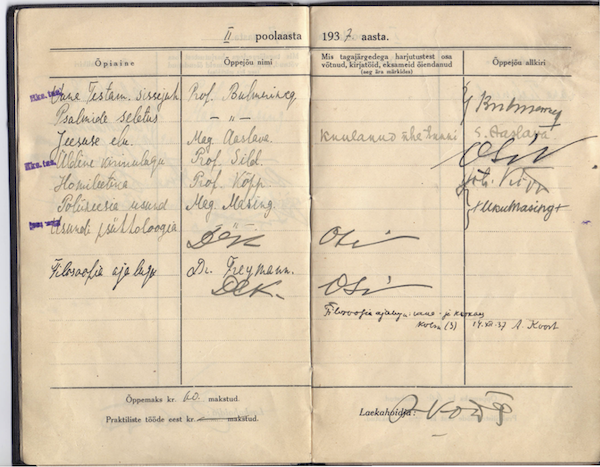 II poolaasta 1937 aasta.
Õpiaine Õppejõu nimi Mis tagajärgedega harjutustest osa võtnud, kirjatöid, eksameid õiendanud (seg ära märkides) Õppejõu allkiri
Vana Testam. sissejuh. Prof. Bulmerincq
Psalmide seletus — „ —
Jeesuse elu. Mag. Aaslava. kuulanud ühe tunni E. Aaslava
Üldine kirikulugu Prof. Sild. O Sild
Homileetica Prof. Kõpp. Joh. Kõpp
Polüneesia usund Mag. Masing. Uku Masing
Usundi psühholoogia „
Filosoofia ajalugu Dr. Freymann.
Filosoofia ajalugu: vana- ja keskaeg
(3) 14.XII.37 A. Koort
Õppemaks kr. 60. makstud.
Praktiliste tööde eest kr. — makstud.
Laekahoidja: